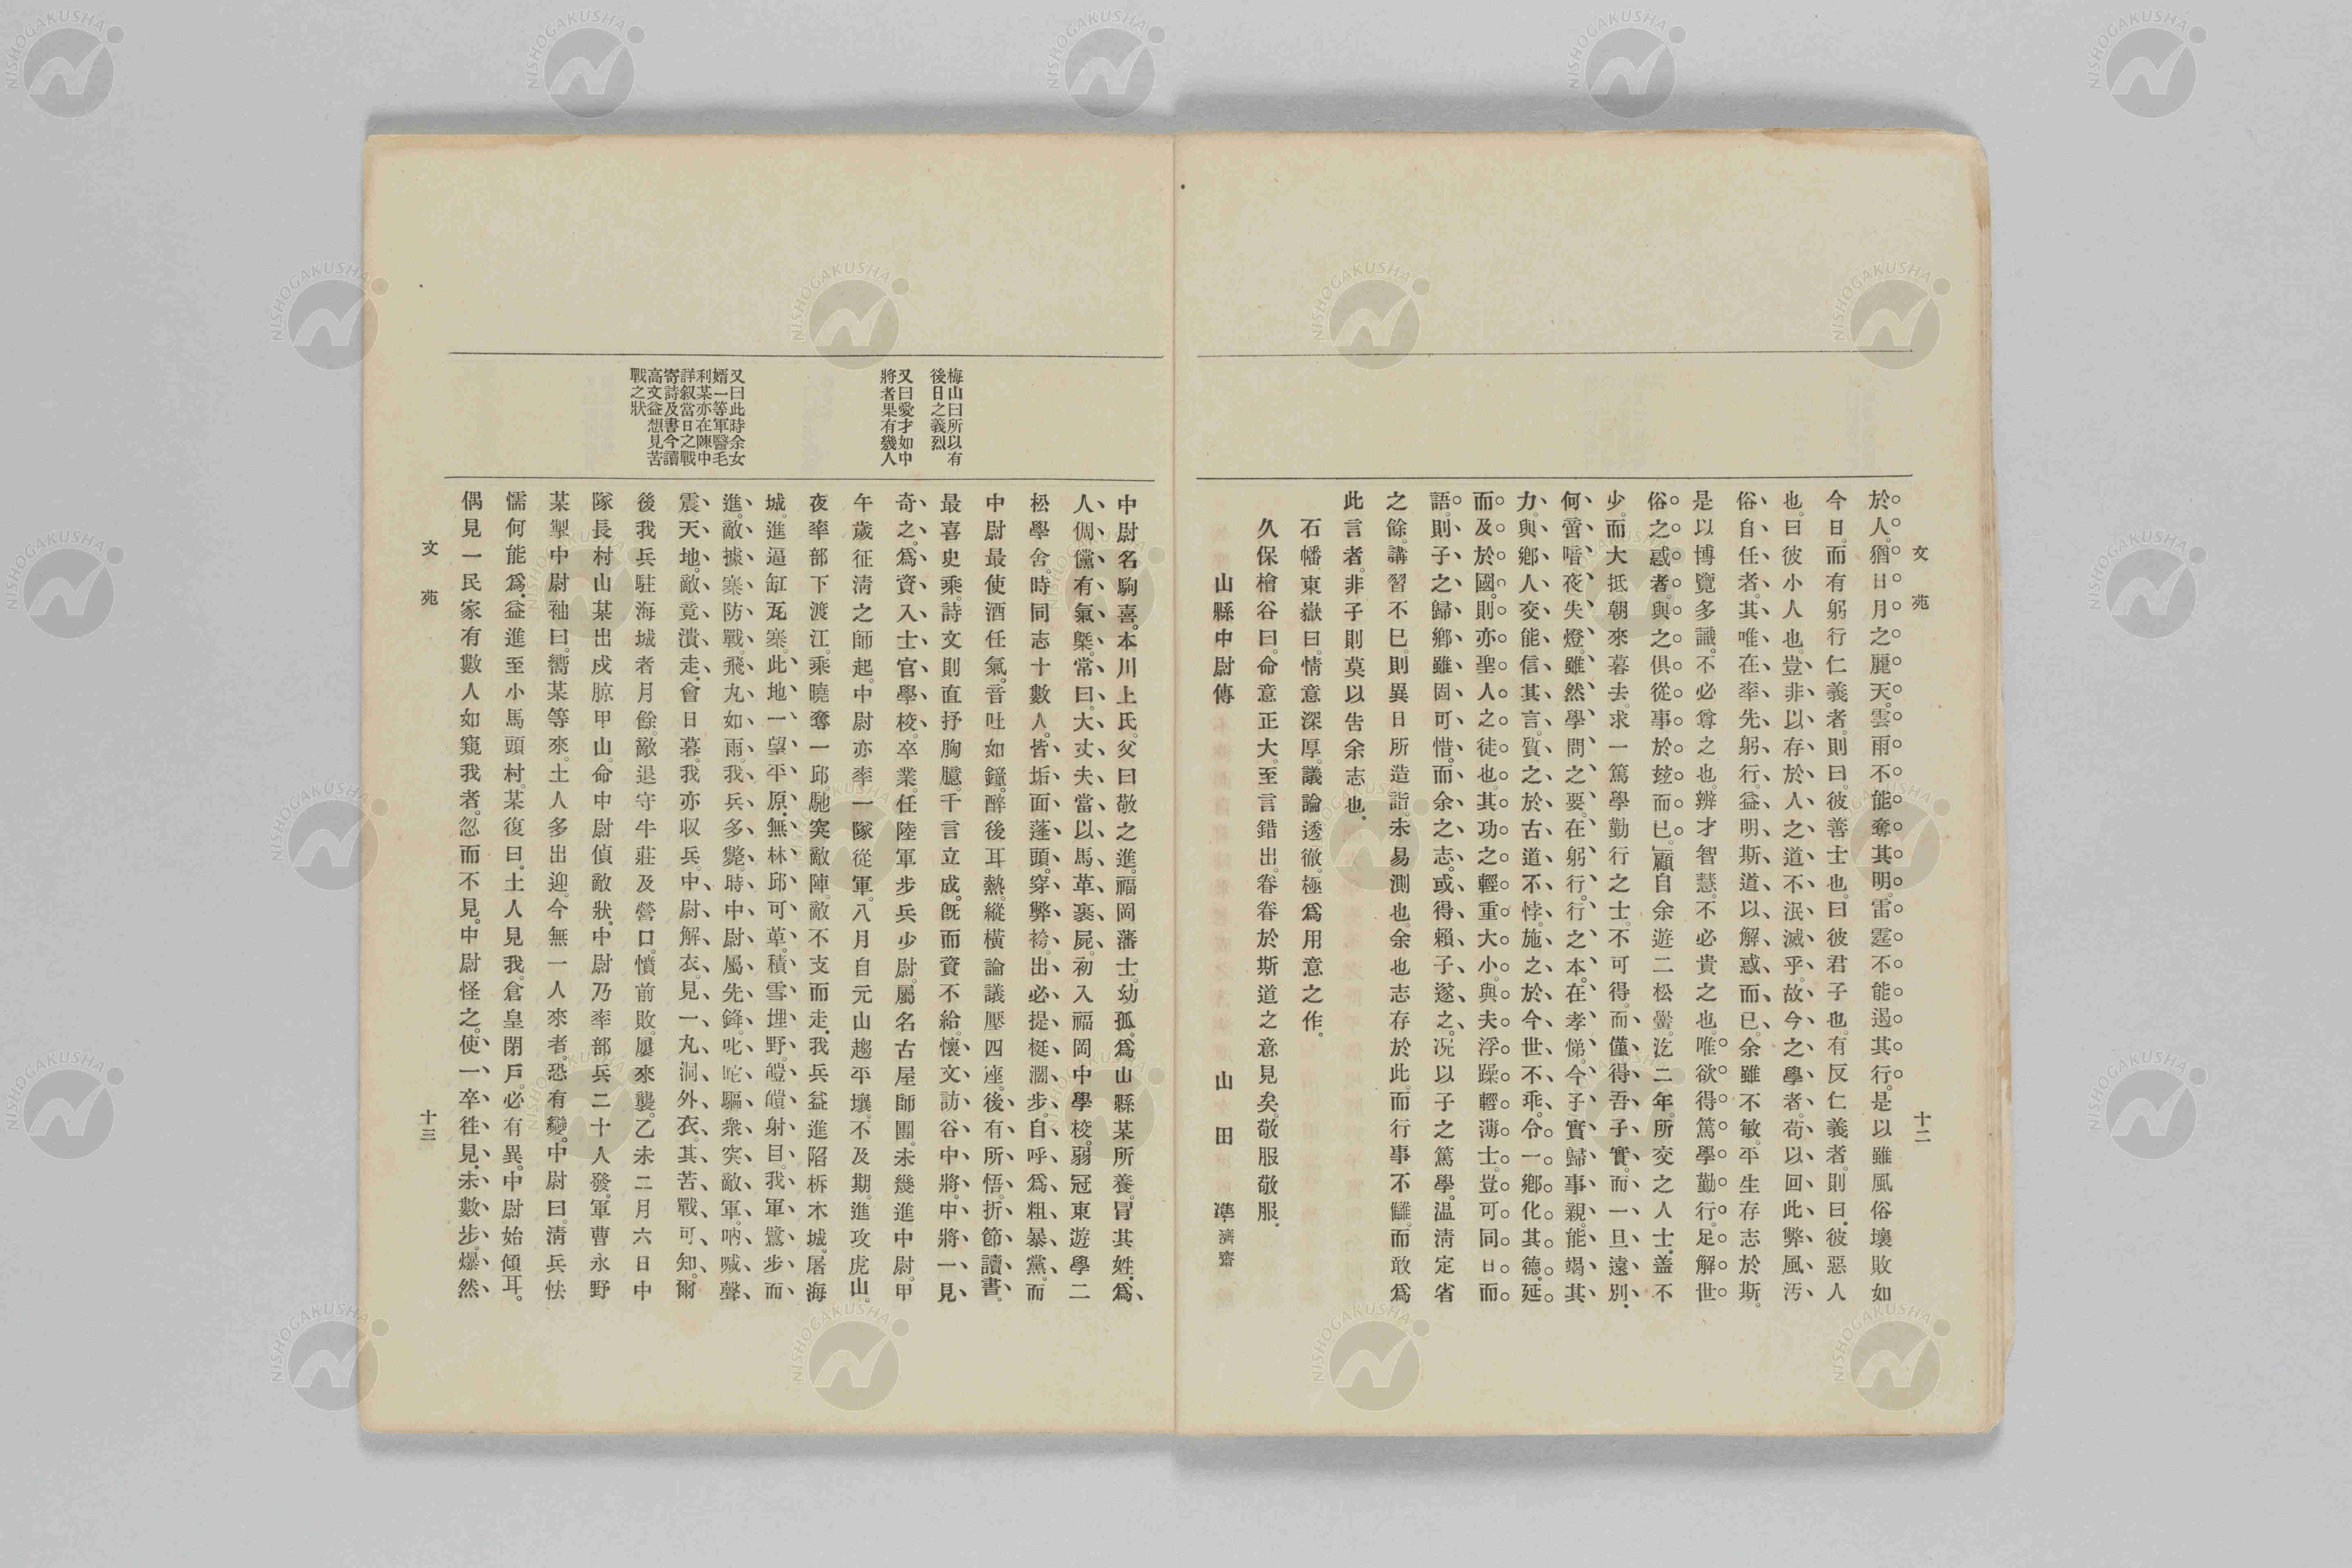 文苑
十二
於人。猶日月之麗天。雲雨不能奪其明。雷霆不能遏其行。是以雖風俗壞敗如
今日。而有躬行仁義者。則曰彼善士也。曰彼君子也。有反仁義者。則曰。彼惡人
也。曰彼小人也。豈非以存於人之道不泯滅乎。故今之學者。苟以回此弊風汚
俗自任者。其唯在率先躬行。益明斯道以解惑而已。余雖不敏。平生存志於斯。
是以博覽多識。不必尊之也。辨才智慧。不必貴之也。唯欲得篤學勤行。足解世
俗之惑者。與之俱從事於玆而已。」顧自余遊二松黌。迄二年。所交之人士。盖不
少。而大抵朝來暮去。求一篤學勤行之士。不可得。而僅得吾子實。而一旦遠別。
何啻暗夜失燈。雖然學問之要。在躬行。行之本。在孝悌。今子實歸事親。能竭其
力。與鄉人交能信其言。質之於古道不悖。施之於今世不乖。令一鄉化其德。延
而及於國。則亦聖人之徒也。其功之輕重大小。與夫浮躁輕薄士。豈可同日而
語。則子之歸鄉。雖固可惜。而余之志。或得賴子遂之。况以子之篤學。温淸定省
之餘。講習不已。則異日所造詣。未易測也。余也志存於此而行事不讎。而敢爲
此言者。非子則莫以吿余志也。
石幡東嶽曰。情意深厚。議論透徹。極爲用意之作。
久保檜谷曰。命意正大。至言錯出。眷眷於斯道之意見矣。敬服敬服。
山縣中尉傳
山田準濟齋
梅山曰所以有
後日之義烈
又曰愛才如中
將者果有幾人
又曰此時余女
婿一等軍醫毛
利某亦在陳中
詳叙當日之戰
寄詩及書今讀
高文益想見苦
戰之狀
中尉名駒喜。本川上氏。父曰敬之進。福岡藩士。幼孤。爲山縣某所養。冒其姓。爲
人倜儻有氣槩。常曰。大丈夫當以馬革裹屍。初入福岡中學校。弱冠東遊學二
松學舍。時同志十數人。皆垢面蓬頭。穿弊袴。出必提梃。濶步。自呼爲粗暴黨。而
中尉最使酒任氣。音吐如鐘。醉後耳熱。縱橫論議壓四座。後有所悟。折節讀書。
最喜史乘。詩文則直抒胸臆。千言立成。旣而資不給。懷文訪谷中將。中將一見
奇之。爲資入士官學校。卒業。任陸軍步兵少尉。屬名古屋師團。未幾進中尉。甲
午歲征淸之師起。中尉亦率一隊從軍。八月自元山趨平壤。不及期。進攻虎山。
夜率部下渡江。乘曉奪一邱。馳突敵陣。敵不支而走。我兵益進陷柝木城。屠海
城。進逼缸瓦寨。此地一望平原。無林邱可草。積雪埋野。皚皚射目。我軍鷺步而
進。敵據寨防戰。飛丸如雨。我兵多斃。時中尉屬先鋒。叱咤驅衆突敵軍。吶喊聲
震天地。敵竟潰走。會日暮。我亦収兵。中尉解衣。見一丸洞外衣。其苦戰可知。爾
後我兵駐海城者月餘。敵退守牛莊及營口。憤前敗。屢來襲。乙未二月六日中
隊長村山某出戍腙甲山。命中尉偵敵狀。中尉乃率部兵二十人發。軍曹永野
某掣中尉袖曰。嚮某等來。土人多出迎。今無一人來者。恐有變。中尉曰。淸兵怯
懦何能爲。益進至小馬頭村。某復曰。土人見我。倉皇閉戶。必有異。中尉始傾耳。
偶見一民家有數人如窺我者。忽而不見。中尉怪之。使一卒徃見。未數步。爆然
文苑
十三